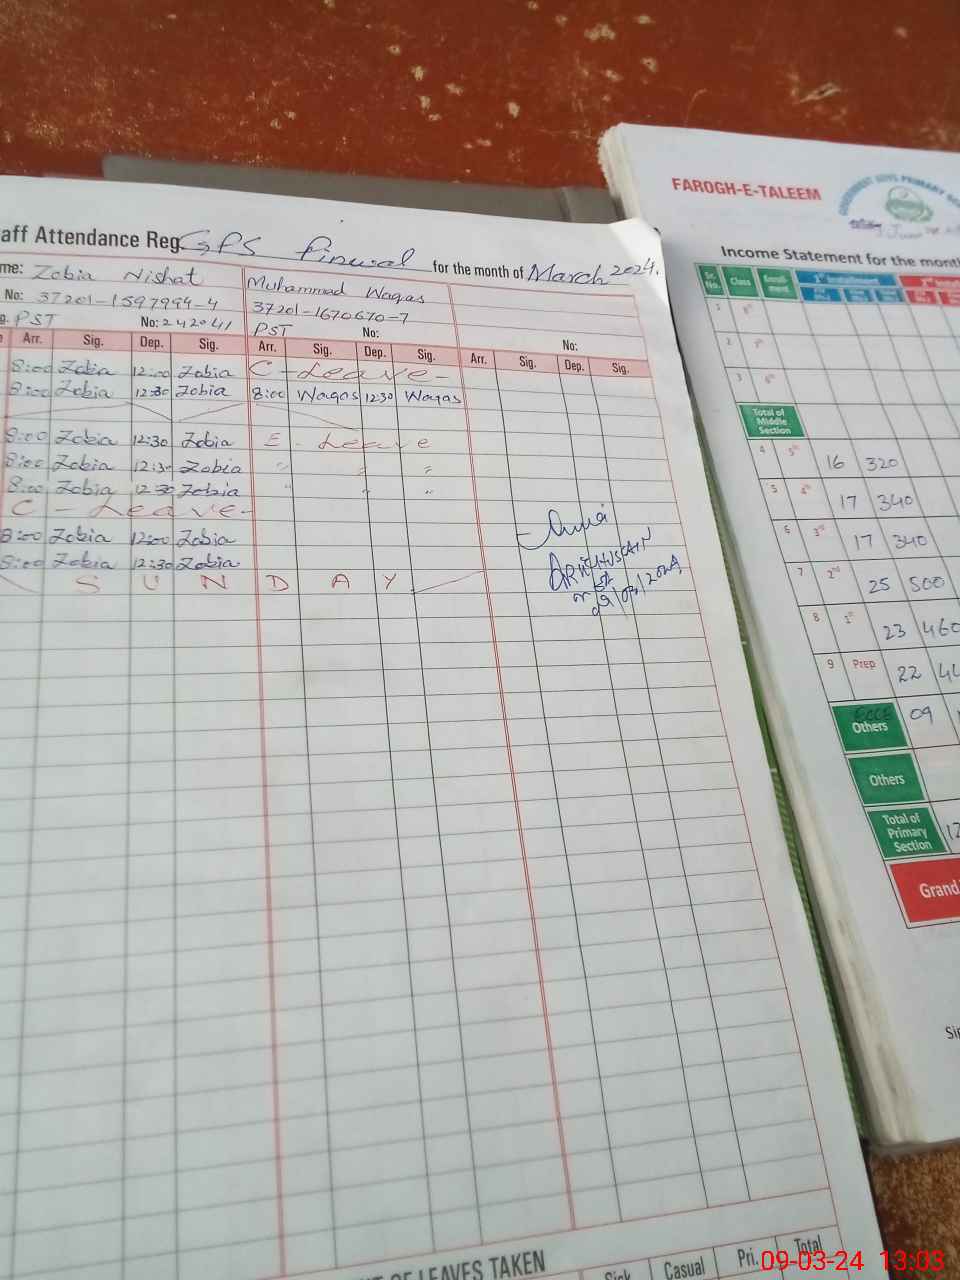 aff Attendance Reg. GPS Pinwal for the month of March 2024.
me: Zobia Nishat Muhammad Waqas
No: 37201-1597994-4 37201-1670670-7
g. PST No: 242041 PST No: No:
Arr. Sig. Dep. Sig. Arr. Sig. Dep. Sig. Arr. Sig. Dep. Sig.
8:00 Zobia 12:00 Zobia C - Leave -
8:00 Zobia 12:30 Zobia 8:00 Waqas 12:30 Waqas
8:00 Zobia 12:30 Zobia E - Leave
8:00 Zobia 12:30 Zobia " " "
8:00 Zobia 12:30 Zobia " " "
C - Leave -
8:00 Zobia 12:00 Zobia
8:00 Zobia 12:30 Zobia
S U N D A Y
OF LEAVES TAKEN
Sick Casual Pri. Total
FAROGH-E-TALEEM
GOVERNMENT BOYS PRIMARY
Income Statement for the month
Sr. No. Class Enroll-ment 1st Installment
1 8th
2 7th
3 6th
Total of
Middle
Section
4 5th 16 320
5 4th 17 340
6 3rd 17 340
7 2nd 25 500
8 1st 23 460
9 Prep 22 44
ECCE
Others 09
Others
Total of
Primary
Section 12
Grand
09-03-24 13:03